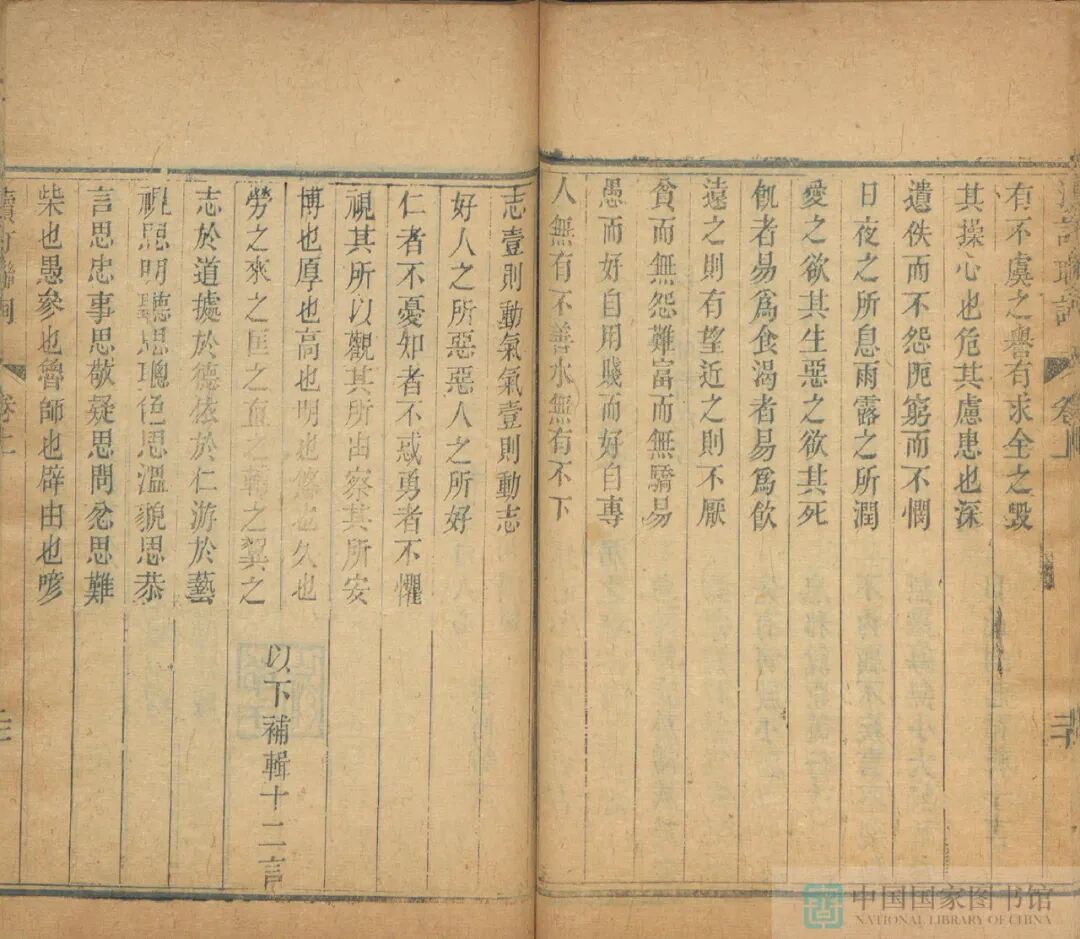 有不虞之譽有求全之毀
其操心也危其慮患也深
遺佚而不怨阨窮而不憫
日夜之所息雨露之所潤
愛之欲其生惡之欲其死
飢者易爲食渴者易爲飲
遠之則有望近之則不厭
貧而無怨難富而無驕易
愚而好自用賤而好自專
人無有不善水無有不下
志壹則動氣氣壹則動志
好人之所惡惡人之所好
仁者不憂知者不惑勇者不懼
視其所以觀其所由察其所安
博也厚也高也明也悠也久也
勞之來之匡之直之輔之翼之
以下補輯十二言
志於道據於德依於仁游於藝
視思明聽思聰色思溫貌思恭
言思忠事思敬疑思問忿思難
柴也愚參也魯師也辟由也喭
卷上
中国国家图书馆
NATIONAL LIBRARY OF CHINA